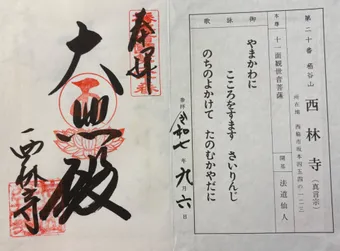 第二十番 栢谷山 西林寺(真言宗)
所在地 西脇市坂本四五四の一二三
本尊 十一面観世音菩薩 開基 法道仙人
御詠歌
やまかわに
こころをすます さいりんじ
のちのよかけて たのむかやだに
奉拝 令和七年九月六日
奉拝
大悲殿
西林寺